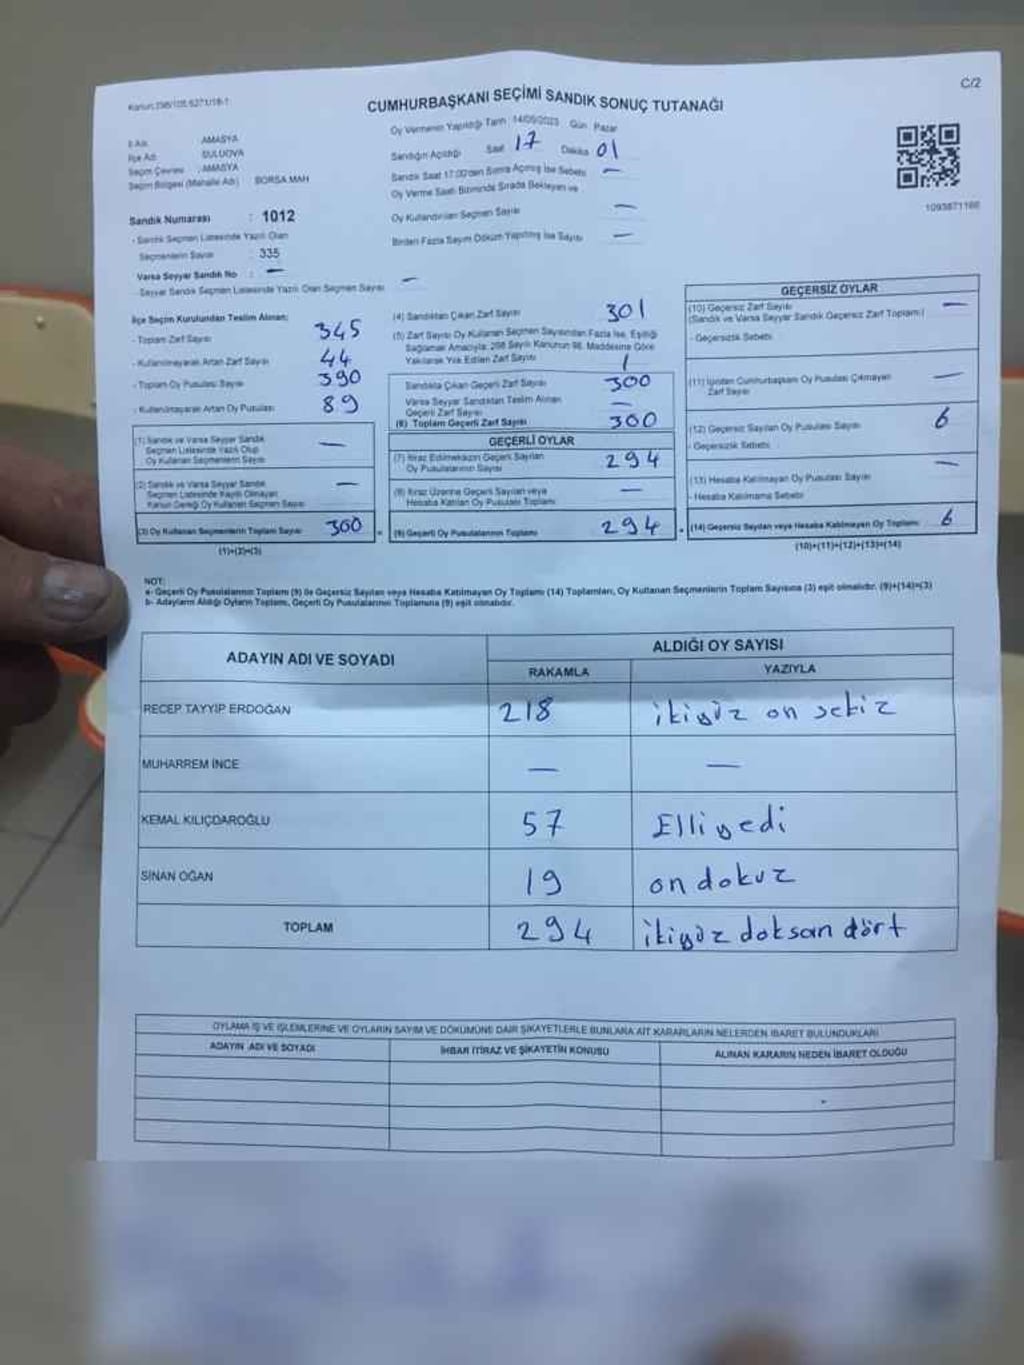 Kanun:298/105 6271/18-1
C/2
CUMHURBAŞKANI SEÇİMİ SANDIK SONUÇ TUTANAĞI
İl Adı : AMASYA
İlçe Adı : SULUOVA
Seçim Çevresi : AMASYA
Seçim Bölgesi (Mahalle Adı) : BORSA MAH
Sandık Numarası : 1012
- Sandık Seçmen Listesinde Yazılı Olan
Seçmenlerin Sayısı : 335
Varsa Seyyar Sandık No : —
- Seyyar Sandık Seçmen Listesinde Yazılı Olan Seçmen Sayısı —
Oy Vermenin Yapıldığı Tarih 14/05/2023 Gün Pazar
Sandığın Açıldığı Saat 17 Dakika 01
Sandık Saat 17:00'den Sonra Açılmış İse Sebebi —
Oy Verme Saati Bitiminde Sırada Bekleyen ve
Oy Kullandırılan Seçmen Sayısı —
Birden Fazla Sayım Döküm Yapılmış İse Sayısı —
1093871166
İlçe Seçim Kurulundan Teslim Alınan:
- Toplam Zarf Sayısı 345
- Kullanılmayarak Artan Zarf Sayısı 44
- Toplam Oy Pusulası Sayısı 390
- Kullanılmayarak Artan Oy Pusulası 89
(1) Sandık ve Varsa Seyyar Sandık
Seçmen Listesinde Yazılı Olup
Oy Kullanan Seçmenlerin Sayısı —
(2) Sandık ve Varsa Seyyar Sandık
Seçmen Listesinde Kayıtlı Olmayan
Kanun Gereği Oy Kullanan Seçmen Sayısı —
(3) Oy Kullanan Seçmenlerin Toplam Sayısı 300 =
(1)+(2)=(3)
(4) Sandıktan Çıkan Zarf Sayısı 301
(5) Zarf Sayısı Oy Kullanan Seçmen Sayısından Fazla İse, Eşitliği
Sağlamak Amacıyla, 298 Sayılı Kanunun 98. Maddesine Göre
Yakılarak Yok Edilen Zarf Sayısı 1
Sandıkta Çıkan Geçerli Zarf Sayısı 300
Varsa Seyyar Sandıktan Teslim Alınan
Geçerli Zarf Sayısı —
(6) Toplam Geçerli Zarf Sayısı 300
GEÇERLİ OYLAR
(7) İtiraz Edilmeksizin Geçerli Sayılan
Oy Pusulalarının Sayısı 294
(8) İtiraz Üzerine Geçerli Sayılan veya
Hesaba Katılan Oy Pusulası Toplamı —
(9) Geçerli Oy Pusulalarının Toplamı 294
GEÇERSİZ OYLAR
(10) Geçersiz Zarf Sayısı —
(Sandık ve Varsa Seyyar Sandık Geçersiz Zarf Toplamı)
- Geçersizlik Sebebi
(11) İçinden Cumhurbaşkanı Oy Pusulası Çıkmayan
Zarf Sayısı —
(12) Geçersiz Sayılan Oy Pusulası Sayısı 6
- Geçersizlik Sebebi
(13) Hesaba Katılmayan Oy Pusulası Sayısı —
- Hesaba Katılmama Sebebi
(14) Geçersiz Sayılan veya Hesaba Katılmayan Oy Toplamı 6
(10)+(11)+(12)+(13)=(14)
NOT:
a- Geçerli Oy Pusulalarının Toplamı (9) ile Geçersiz Sayılan veya Hesaba Katılmayan Oy Toplamı (14) Toplamları, Oy Kullanan Seçmenlerin Toplam Sayısına (3) eşit olmalıdır. (9)+(14)=(3)
b- Adayların Aldığı Oyların Toplamı, Geçerli Oy Pusulalarının Toplamına (9) eşit olmalıdır.
ADAYIN ADI VE SOYADI
ALDIĞI OY SAYISI
RAKAMLA YAZIYLA
RECEP TAYYİP ERDOĞAN 218 ikiyüz on sekiz
MUHARREM İNCE — —
KEMAL KILIÇDAROĞLU 57 Elliyedi
SİNAN OĞAN 19 on dokuz
TOPLAM 294 ikiyüz doksan dört
OYLAMA İŞ VE İŞLEMLERİNE VE OYLARIN SAYIM VE DÖKÜMÜNE DAİR ŞİKAYETLERLE BUNLARA AİT KARARLARIN NELERDEN İBARET BULUNDUKLARI
ADAYIN ADI VE SOYADI İHBAR İTİRAZ VE ŞİKAYETİN KONUSU ALINAN KARARIN NEDEN İBARET OLDUĞU